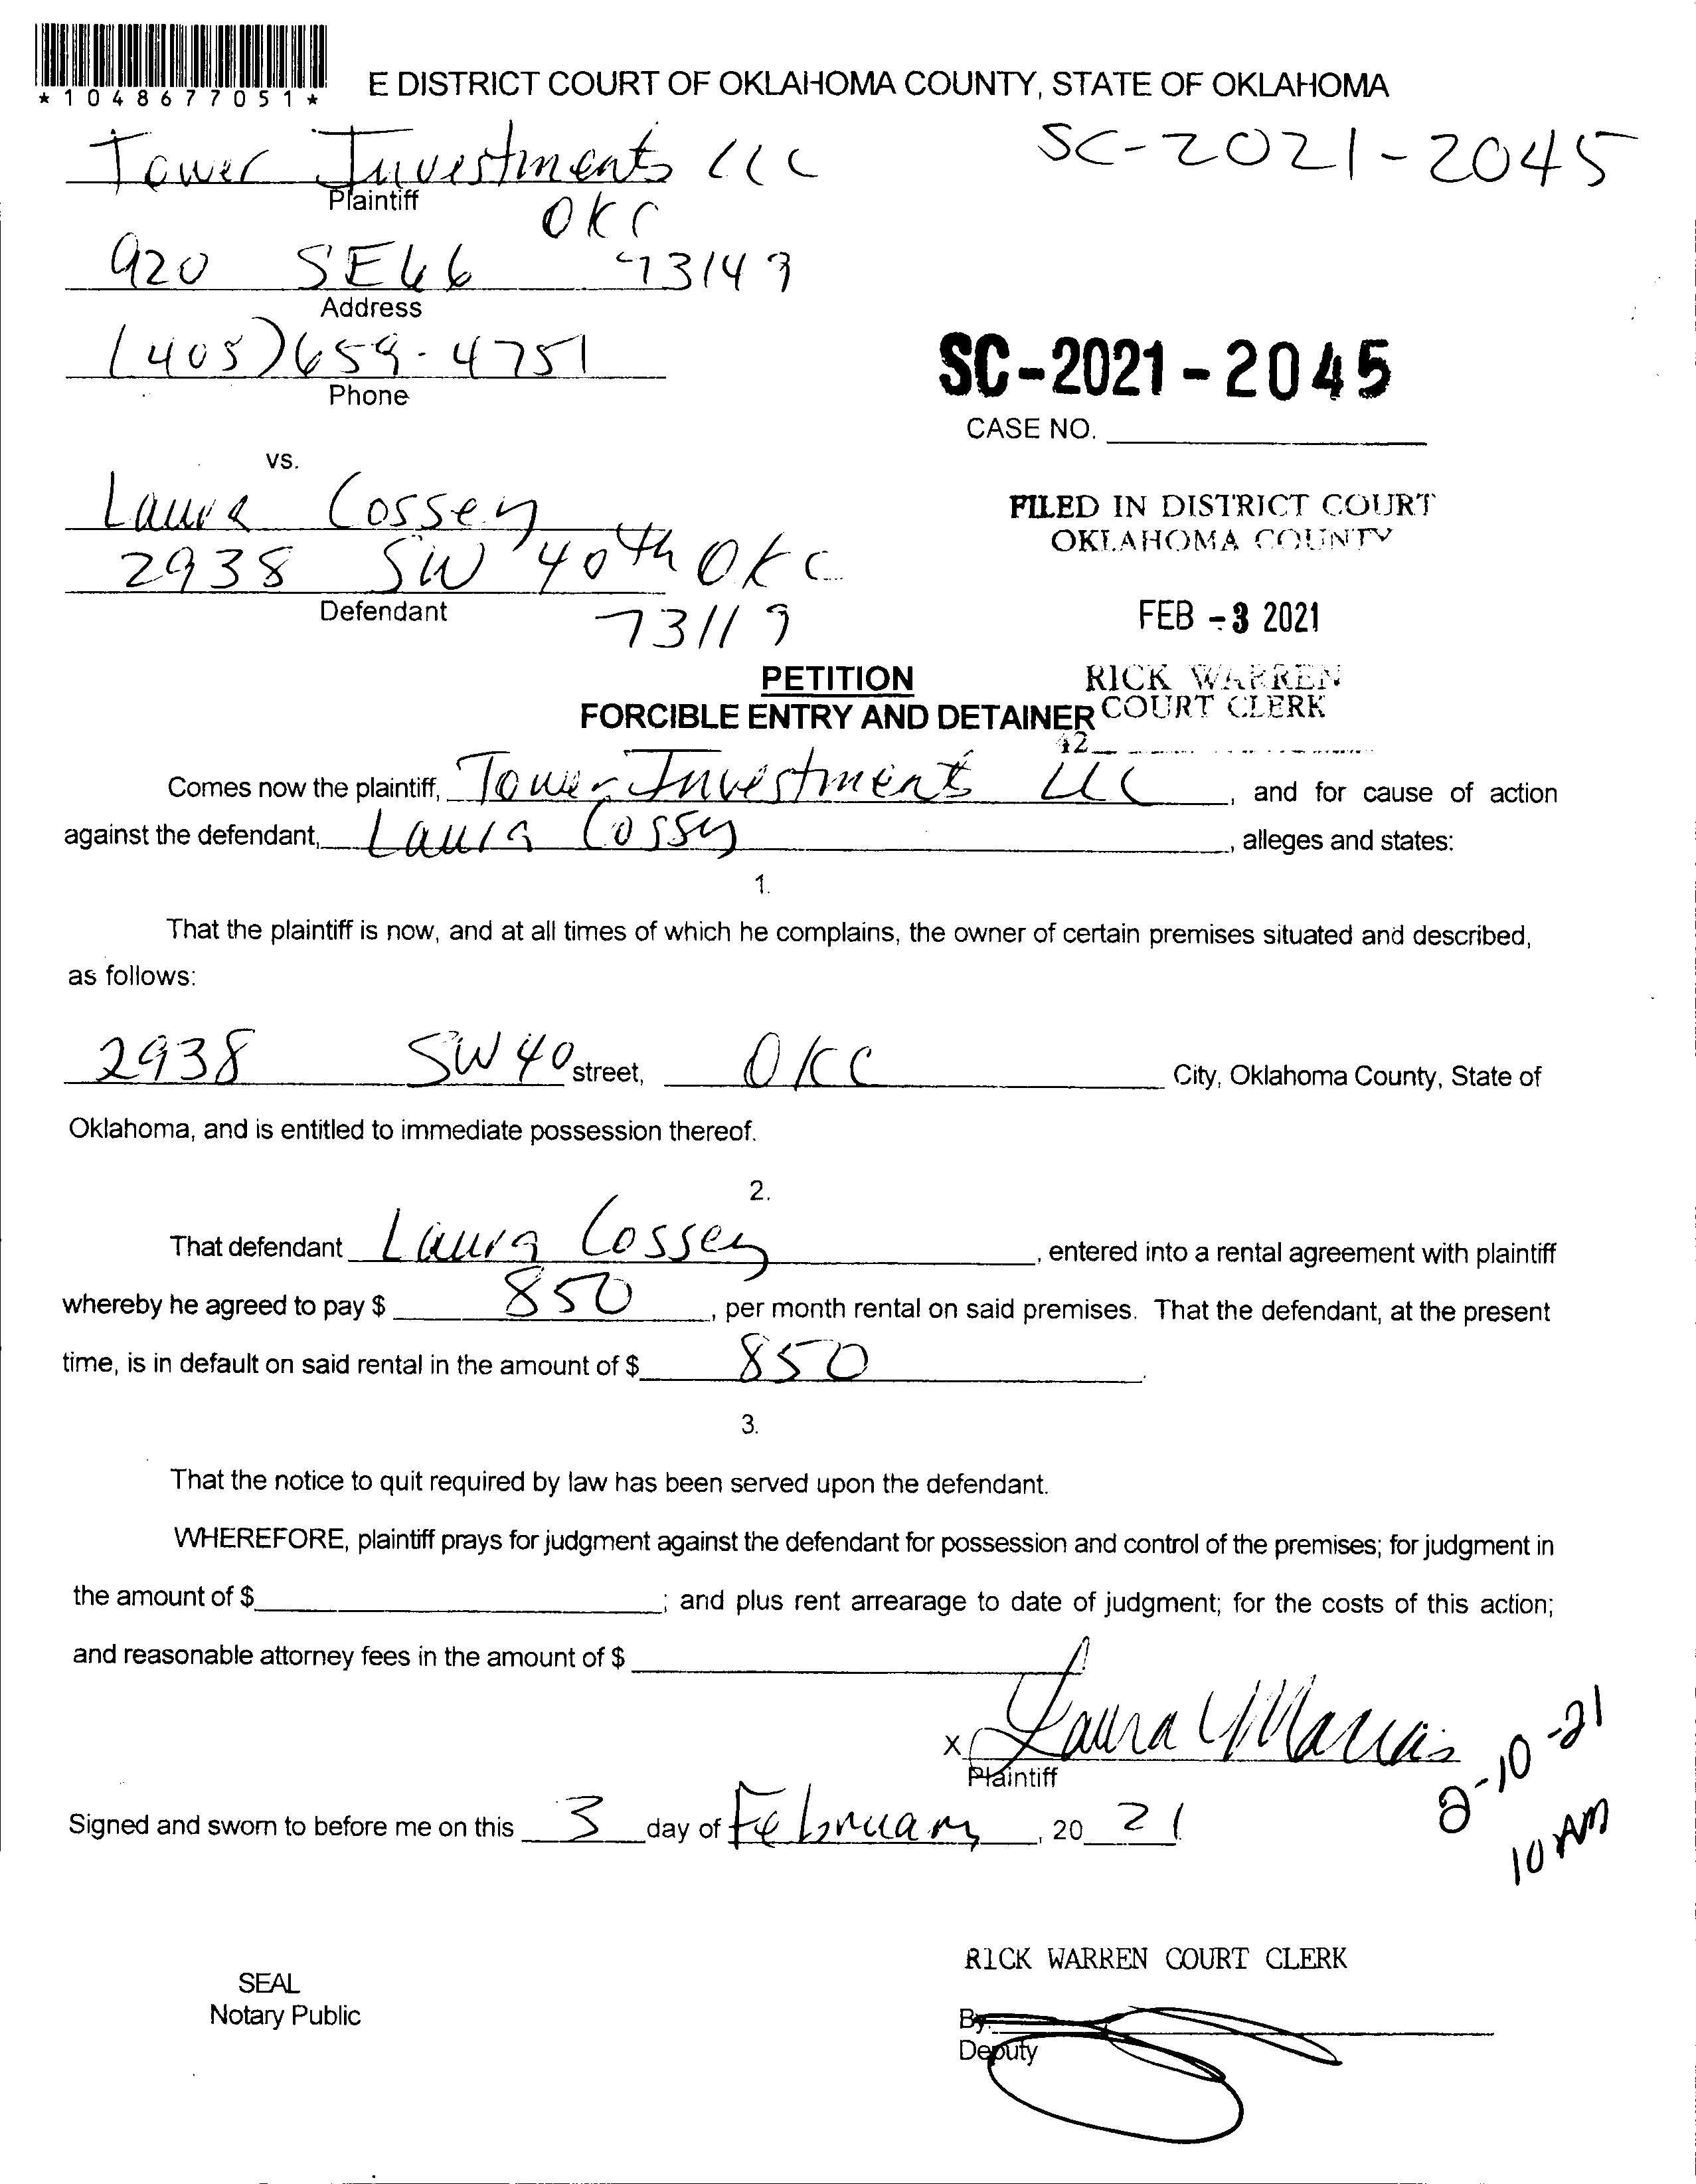 *1048677051*
E DISTRICT COURT OF OKLAHOMA COUNTY, STATE OF OKLAHOMA
Tower Investments LLC
SC-2021-2045
Plaintiff
OKC
920 SE66 73149
Address
(405)659-4751
Phone
SC-2021-2045
CASE NO.
vs.
Laura Cossey
2938 SW 40th OKC
Defendant
73119
FILED IN DISTRICT COURT
OKLAHOMA COUNTY
FEB -3 2021
RICK WARREN
COURT CLERK
42
PETITION
FORCIBLE ENTRY AND DETAINER
Comes now the plaintiff, Tower Investments LLC, and for cause of action
against the defendant, Laura Cossey, alleges and states:
1.
That the plaintiff is now, and at all times of which he complains, the owner of certain premises situated and described,
as follows:
2938 SW 40 street, OKC City, Oklahoma County, State of
Oklahoma, and is entitled to immediate possession thereof.
2.
That defendant Laura Cossey, entered into a rental agreement with plaintiff
whereby he agreed to pay $ 850, per month rental on said premises. That the defendant, at the present
time, is in default on said rental in the amount of $ 850.
3.
That the notice to quit required by law has been served upon the defendant.
WHEREFORE, plaintiff prays for judgment against the defendant for possession and control of the premises; for judgment in
the amount of $ ; and plus rent arrearage to date of judgment; for the costs of this action;
and reasonable attorney fees in the amount of $
x Laura Marcias
Plaintiff
2-10-21
10 AM
Signed and sworn to before me on this 3 day of February, 20 21
RICK WARREN COURT CLERK
SEAL
Notary Public
By:
Deputy